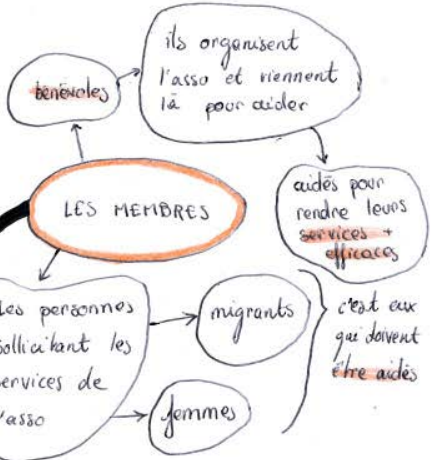 bénévoles
ils organisent
l'asso et viennent
là pour aider
LES MEMBRES
aidés pour
rendre leurs
services +
efficaces
les personnes
sollicitant les
services de
l'asso
migrants
femmes
c'est eux
qui doivent
être aidés